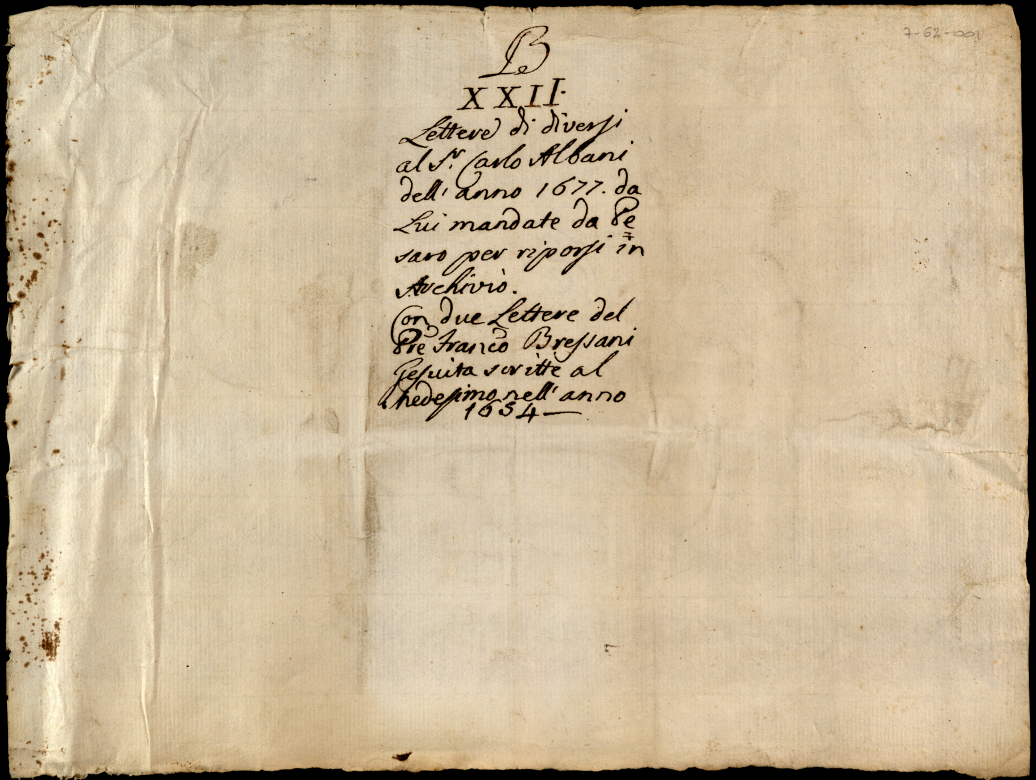 7-62-001
B
XXII.
Lettere di diversi
al Sr. Carlo Albani
dell' anno 1677. da
Lui mandate da Pe
saro per riporsi in
Archivio.
Con due Lettere del
Pre Franco Bressani
Gesuita scritte al
medesimo nell' anno
1654